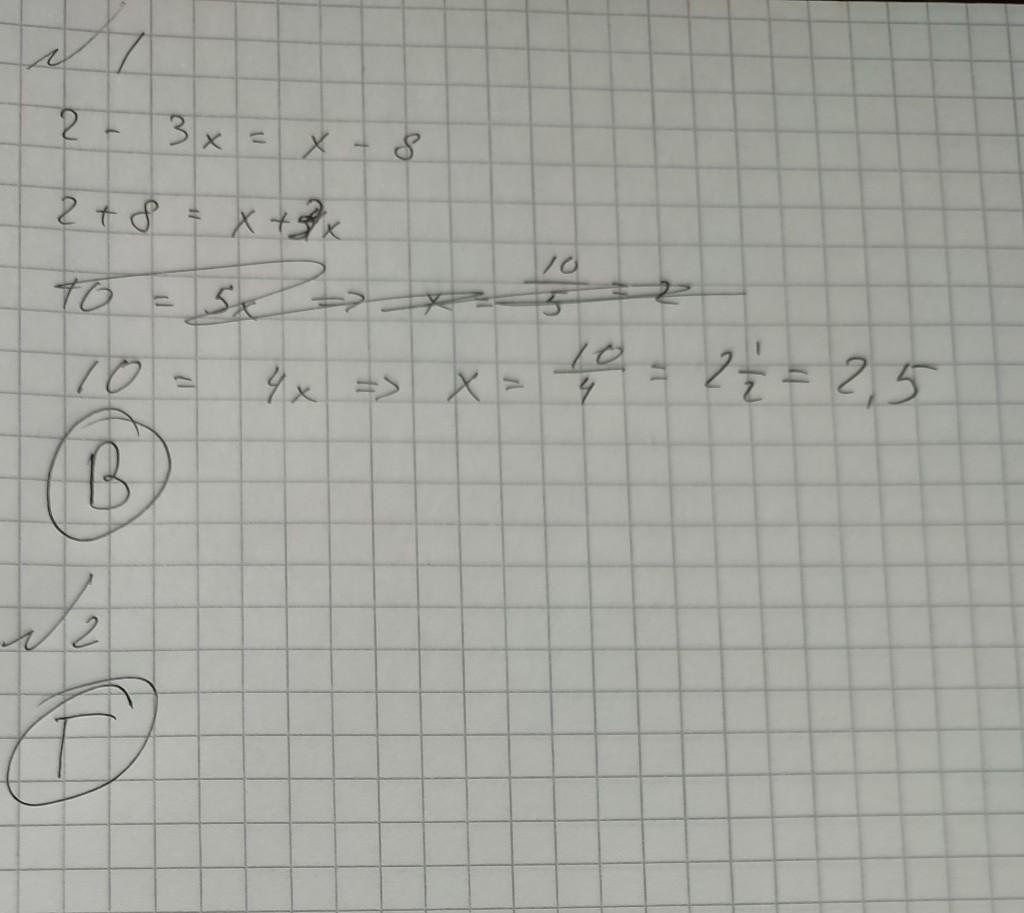 №1
2 - 3x = x - 8
2 + 8 = x + 3x
10 = 5x => x = 10/5 = 2
10 = 4x => x = 10/4 = 2 1/2 = 2,5
В
№2
Г